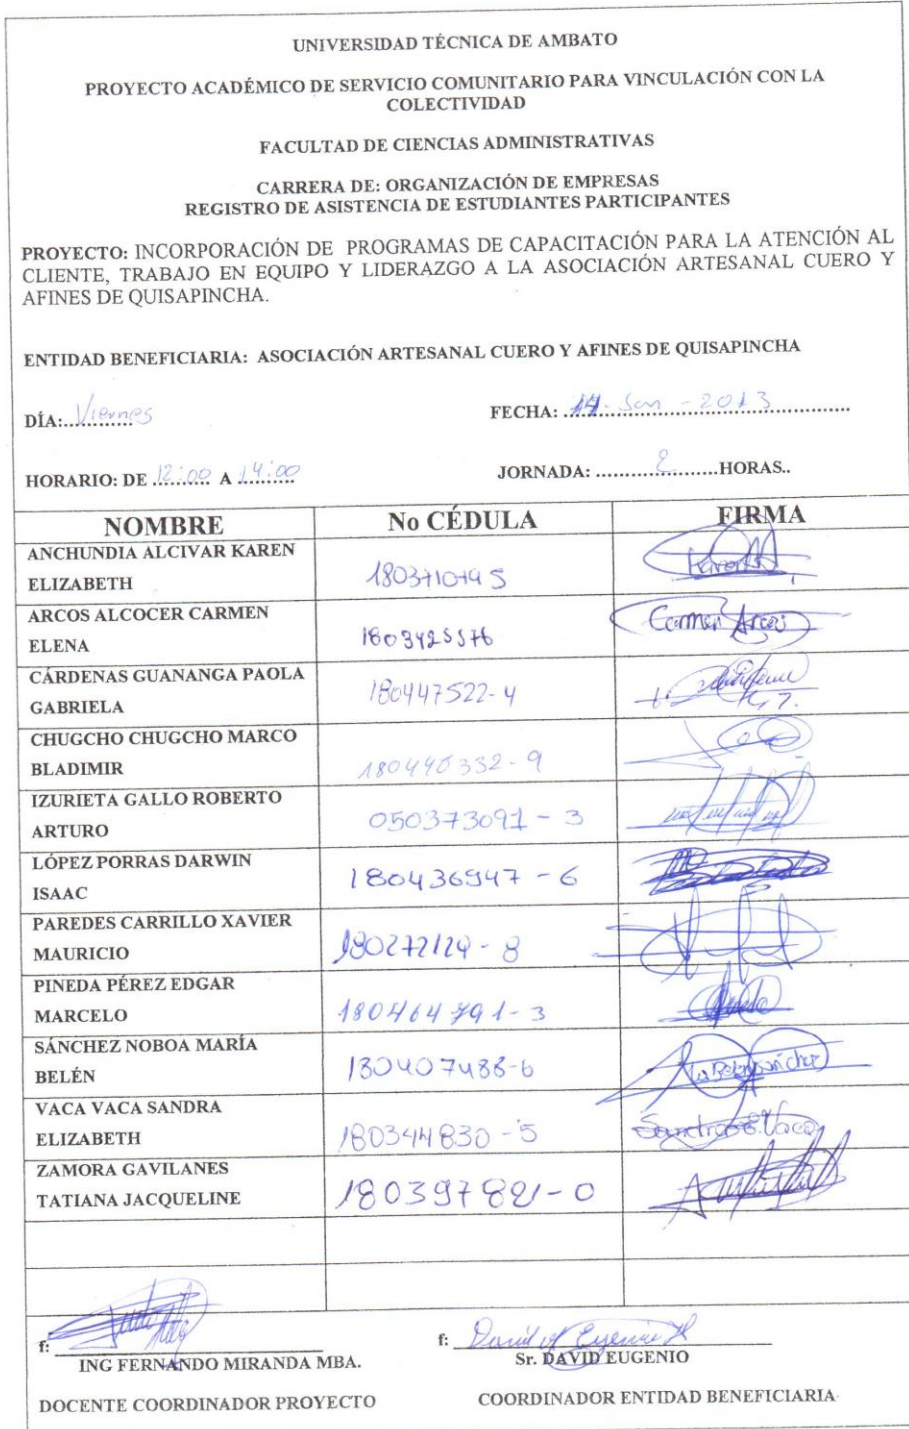 UNIVERSIDAD TÉCNICA DE AMBATO
PROYECTO ACADÉMICO DE SERVICIO COMUNITARIO PARA VINCULACIÓN CON LA
COLECTIVIDAD
FACULTAD DE CIENCIAS ADMINISTRATIVAS
CARRERA DE: ORGANIZACIÓN DE EMPRESAS
REGISTRO DE ASISTENCIA DE ESTUDIANTES PARTICIPANTES
PROYECTO: INCORPORACIÓN DE PROGRAMAS DE CAPACITACIÓN PARA LA ATENCIÓN AL
CLIENTE, TRABAJO EN EQUIPO Y LIDERAZGO A LA ASOCIACIÓN ARTESANAL CUERO Y
AFINES DE QUISAPINCHA.
ENTIDAD BENEFICIARIA: ASOCIACIÓN ARTESANAL CUERO Y AFINES DE QUISAPINCHA
DÍA: Viernes FECHA: 14 - Jun - 2013
HORARIO: DE 12:00 A 14:00 JORNADA: 2 HORAS..
NOMBRE No CÉDULA FIRMA
ANCHUNDIA ALCIVAR KAREN
ELIZABETH
ARCOS ALCOCER CARMEN
ELENA Carmen Arcos
CÁRDENAS GUANANGA PAOLA
GABRIELA 180447522-4
CHUGCHO CHUGCHO MARCO
BLADIMIR
IZURIETA GALLO ROBERTO
ARTURO 050373091 - 3
LÓPEZ PORRAS DARWIN
ISAAC 180436947 - 6
PAREDES CARRILLO XAVIER
MAURICIO
PINEDA PÉREZ EDGAR
MARCELO 180464791-3
SÁNCHEZ NOBOA MARÍA
BELÉN
VACA VACA SANDRA
ELIZABETH 180344830-5 Sandra E. Vaca
ZAMORA GAVILANES
TATIANA JACQUELINE
f: f: David Eugenio
ING FERNANDO MIRANDA MBA. Sr. DAVID EUGENIO
DOCENTE COORDINADOR PROYECTO COORDINADOR ENTIDAD BENEFICIARIA